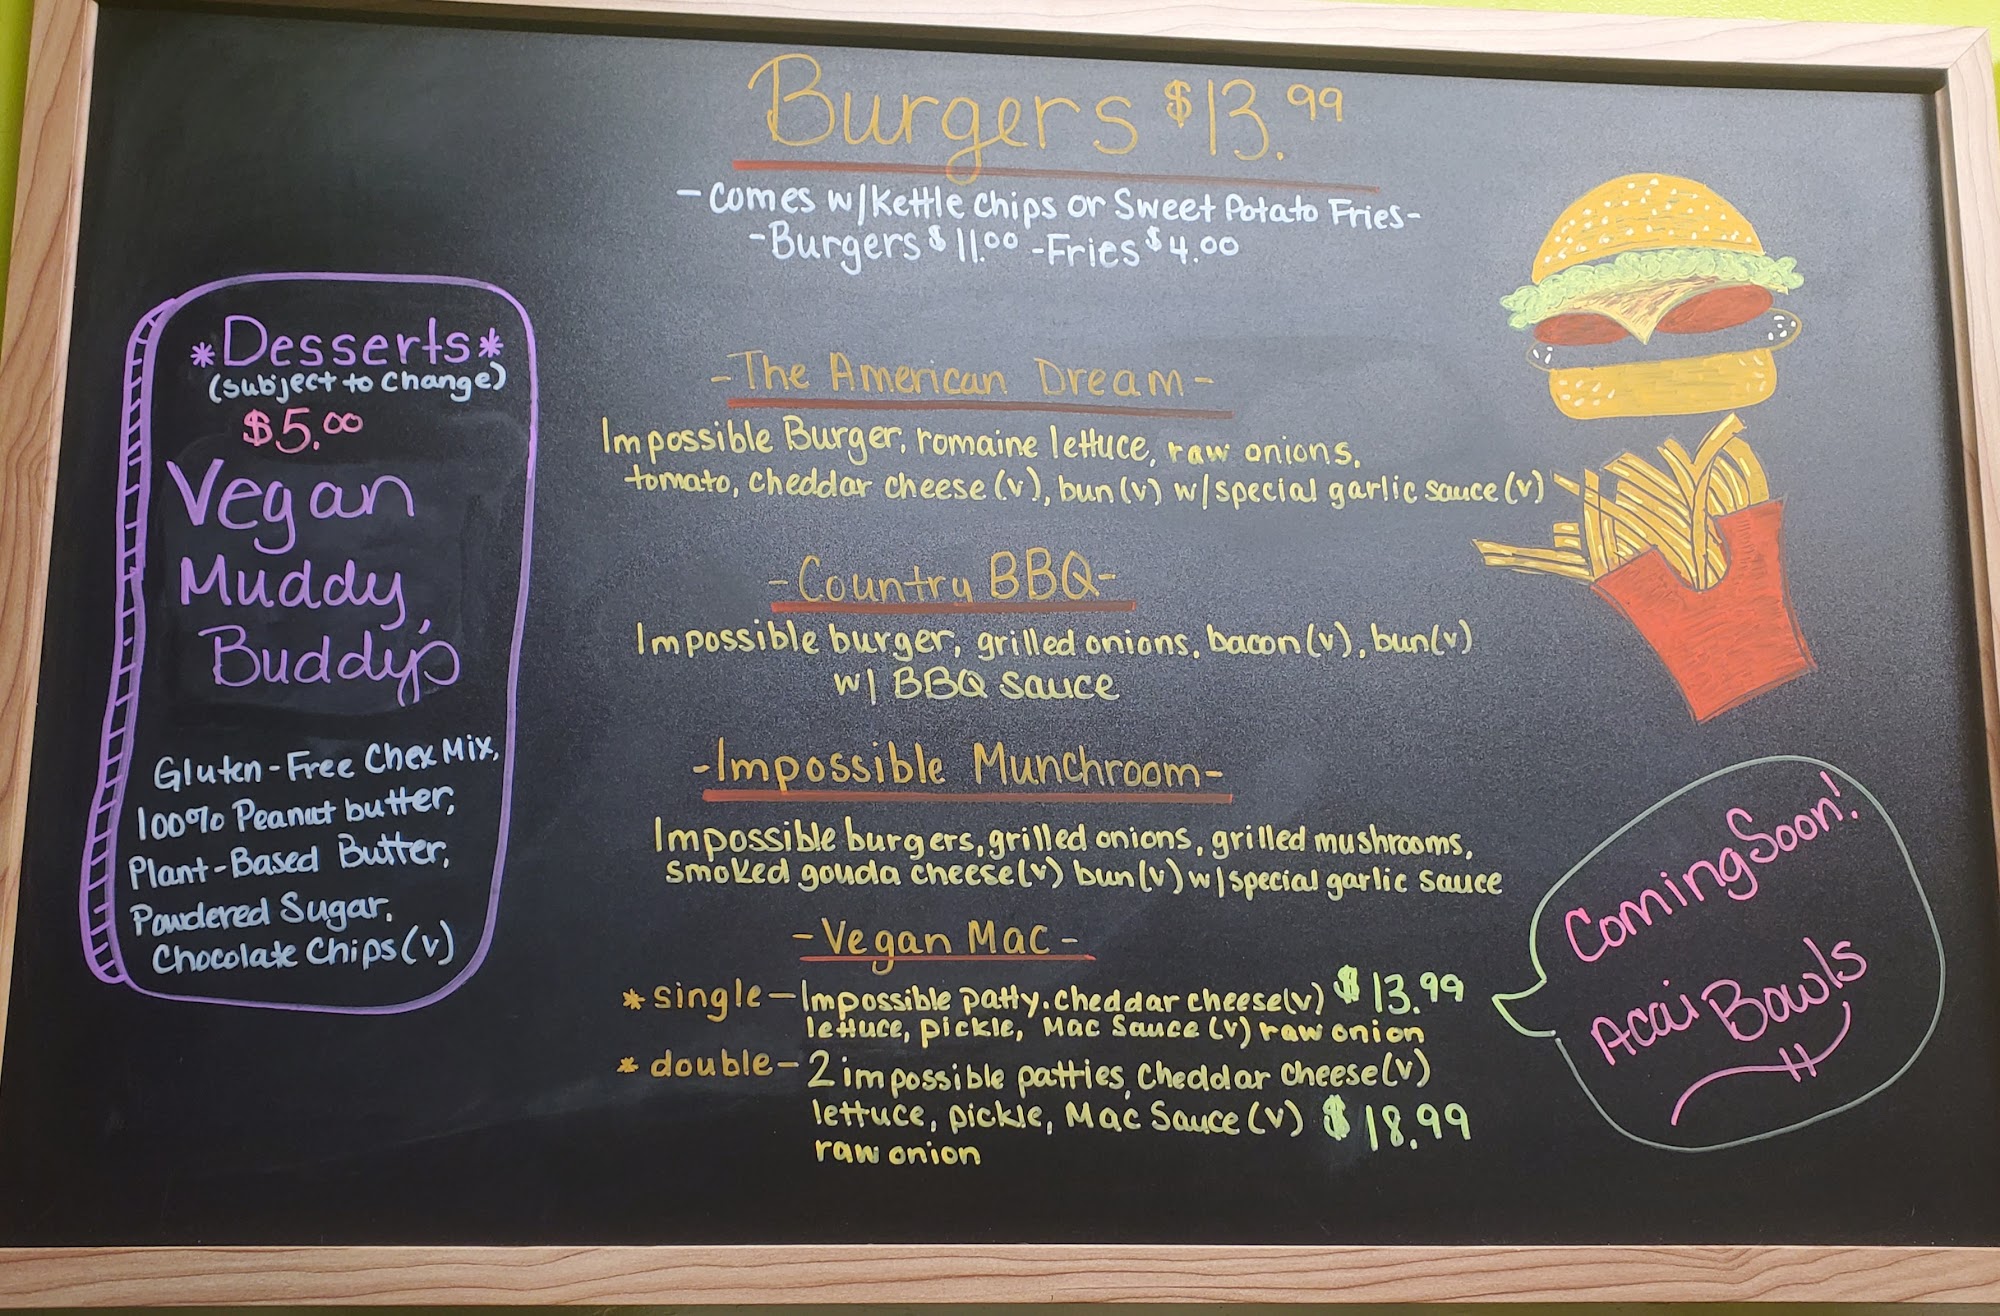 Burgers $13.99
-Comes w/Kettle Chips or Sweet Potato Fries-
-Burgers $11.00 -Fries $4.00
*Desserts*
(subject to change)
$5.00
Vegan
Muddy
Buddy's
Gluten-Free Chex Mix,
100% Peanut butter,
Plant-Based Butter,
Powdered Sugar,
Chocolate Chips (v)
-The American Dream-
Impossible Burger, romaine lettuce, raw onions,
tomato, cheddar cheese (v), bun (v) w/special garlic sauce (v)
-Country BBQ-
Impossible burger, grilled onions, bacon (v), bun(v)
w/ BBQ sauce
-Impossible Munchroom-
Impossible burgers, grilled onions, grilled mushrooms,
smoked gouda cheese(v) bun(v) w/special garlic sauce
-Vegan Mac-
*single-Impossible patty. cheddar cheese(v) $13.99
lettuce, pickle, Mac Sauce (v) raw onion
*double-2 impossible patties, cheddar cheese(v)
lettuce, pickle, Mac Sauce (v) $18.99
raw onion
Coming Soon!
Acai Bowls